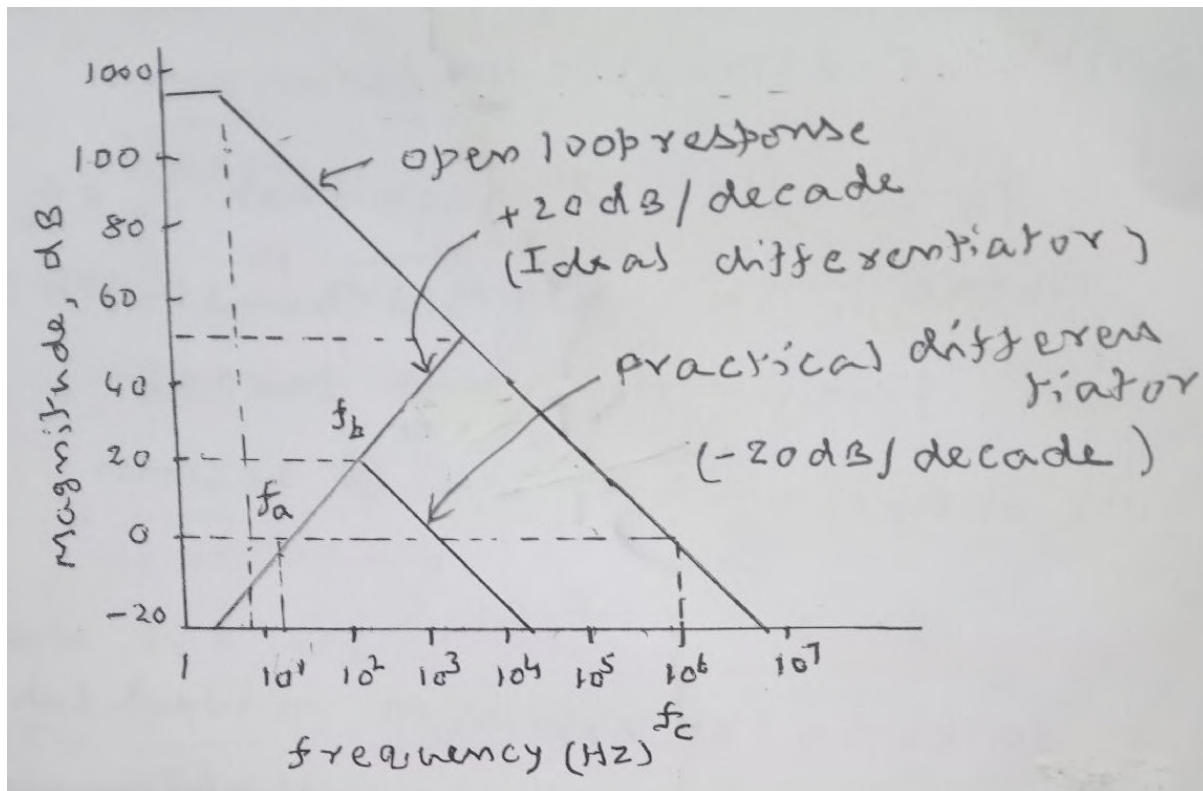 1000
100
80
60
40
20
0
-20
Magnitude, dB
open loop response
+20 dB/decade
(Ideal differentiator)
practical differen
tiator
(-20dB/decade)
fb
fa
1
10¹
10²
10³
10⁴
10⁵
10⁶
10⁷
fc
frequency (Hz)